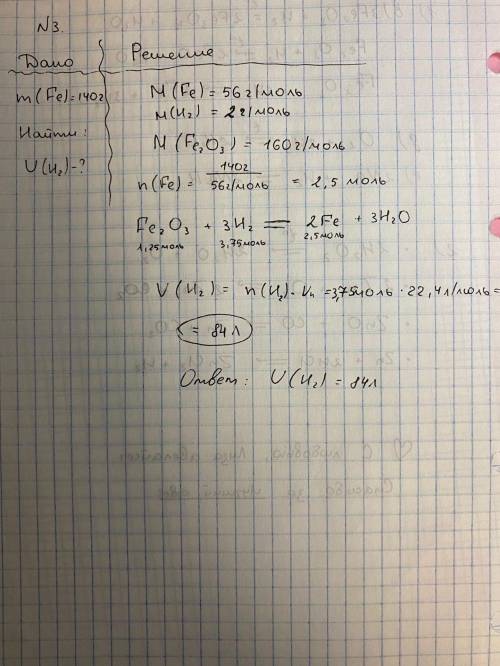 N3.
Дано
Решение
m(Fe)=140г
Найти:
V(H₂)-?
M(Fe)=56г/моль
M(H₂) = 2г/моль
M(Fe₂O₃) = 160г/моль
n(Fe) = 140г / 56г/моль = 2,5 моль
Fe₂O₃ + 3H₂ = 2Fe + 3H₂O
1,25моль 3,75моль 2,5моль
V(H₂) = n(H₂)·Vn =3,75моль·22,4л/моль=
= 84л
Ответ: V(H₂) = 84л